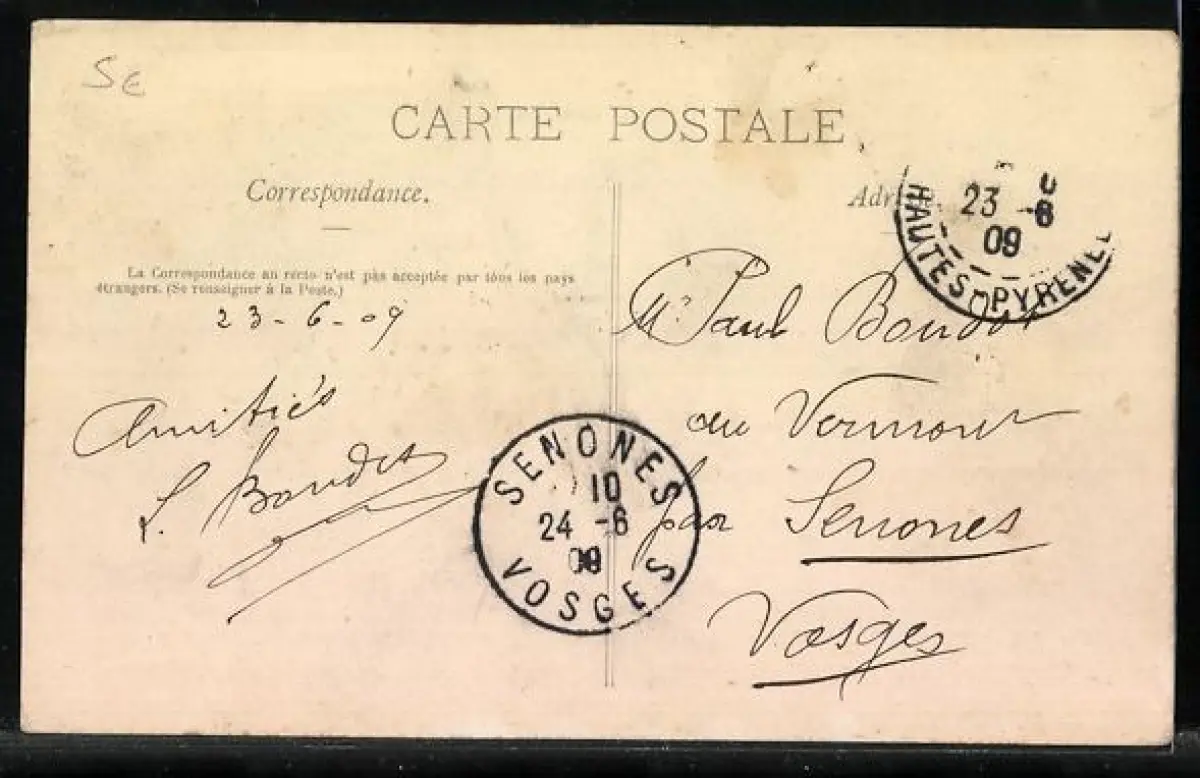 Se
CARTE POSTALE
Correspondance.
La Correspondance au recto n'est pas acceptée par tous les pays
étrangers. (Se renseigner à la Poste.)
23-6-09
Amitiés
L. Boudot
Adr
23 -6
09
HAUTES-PYRENE
Mr Paul Boudot
au Vermont
par Senones
Vosges
SENONES
10
24 -6
09
VOSGES